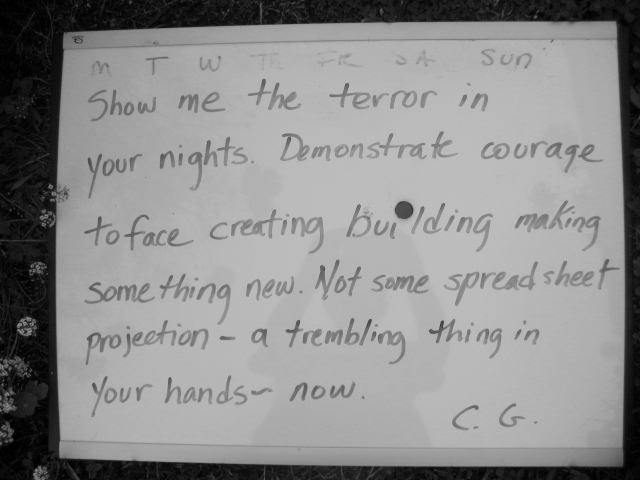 M T W Th FR SA Sun
Show me the terror in
your nights. Demonstrate courage
to face creating building making
something new. Not some spreadsheet
projection - a trembling thing in
your hands - now.
C. G.